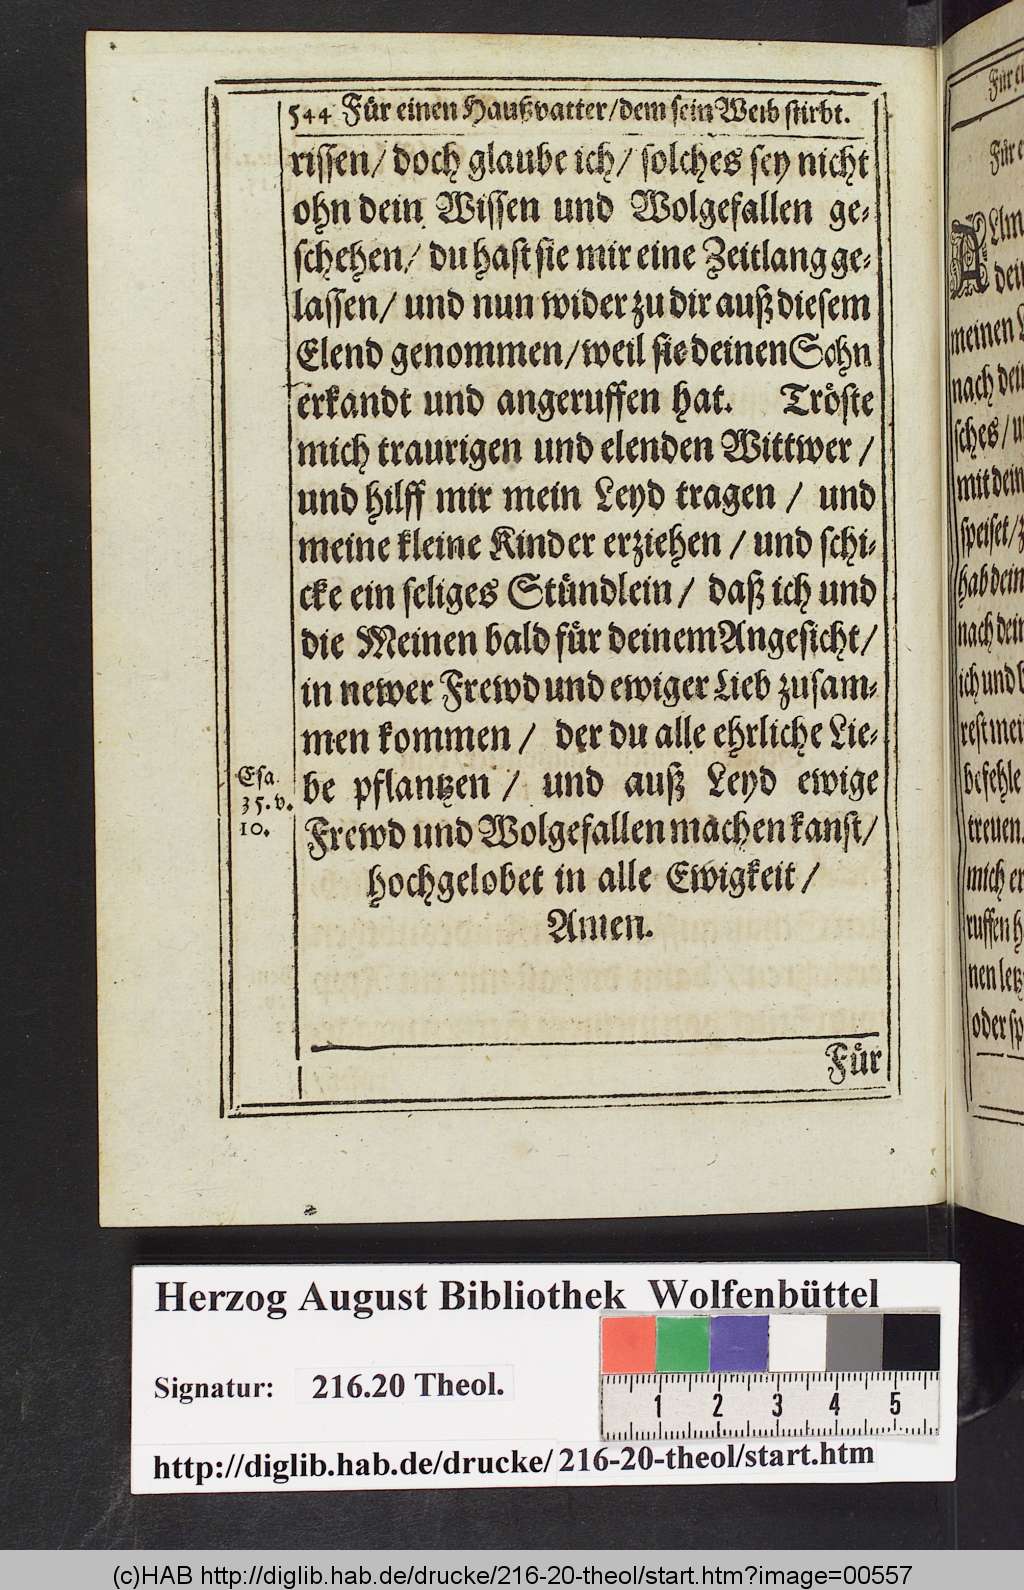 544 Für einen Haußvatter/dem sein Weib stirbt.
rissen/ doch glaube ich/ solches sey nicht
ohn dein Wissen und Wolgefallen ge-
schehen/ du hast sie mir eine Zeitlang ge-
lassen/ und nun wider zu dir auß diesem
Elend genommen/weil sie deinen Sohn
erkandt und angeruffen hat. Tröste
mich traurigen und elenden Wittwer /
und hilff mir mein Leyd tragen / und
meine kleine Kinder erziehen / und schi-
cke ein seliges Stündlein / daß ich und
die Meinen bald für deinem Angesicht/
in newer Frewd und ewiger Lieb zusam-
men kommen / der du alle ehrliche Lie-
be pflantzen / und auß Leyd ewige
Frewd und Wolgefallen machen kanst/
hochgelobet in alle Ewigkeit /
Amen.
Esa.
35. v.
10.
Für
Für e
Für e
ALlm
dei
meinen
nach dei
sches/ u
mit dein
speiset/ z
hab dein
nach dein
ich und b
rest mei
befehle
treuen
mich er
ruffen h
nen letz
oder sp
Herzog August Bibliothek Wolfenbüttel
Signatur: 216.20 Theol.
1 2 3 4 5
http://diglib.hab.de/drucke/216-20-theol/start.htm
(c)HAB http://diglib.hab.de/drucke/216-20-theol/start.htm?image=00557